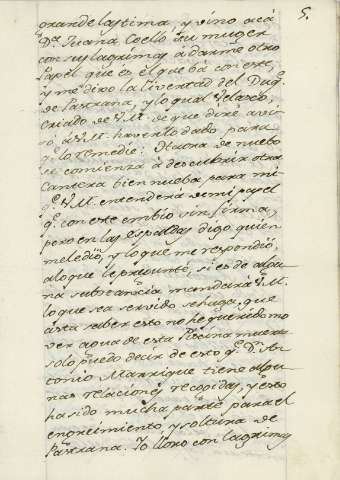 5.
grande lastima, y vino acá
Dª Juana Coello su muger
con sus lagrimas á darme otro
Papel que es el que bá con este,
y me dixo la livertad del Duqᵉ
de Pastrana, y lo qual Velasco,
criado de V.M. de que diré avi-
so, á V.M. haverlo dado para
qᵉ lo remedie: Haora de nuebo
se comienza á descubrir otra
Cantera bien nueba para mi
qᵉ V.M. entenderá de mi papel
qᵉ con este embio sin firma,
pero en las espaldas digo quien
me le dió, y lo que me respondió,
a lo que le pregunté, si es de algu-
na substancia mandará V.M.
lo que sea servido se haga, que
asta saber esto no he querido mo
ver agua de esta Piscina muerta
solo puedo decir de esto qᵉ Dⁿ An-
tonio Manrrique tiene algu-
nas relaciones recogidas, y esto
ha sido mucha parte para el
y soltura de
Pastrana. Yo lloro con lagrimas